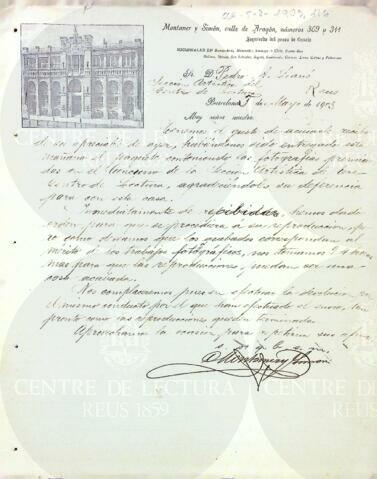 Montaner y Simón, calle de Aragón, números 309 y 311
Izquierda del paseo de Gracia
Sr. D. Pedro
Sección Artística del
Centro de Lectura Reus
Barcelona 5 de Mayo de 1903
Muy señor nuestro:
Tenemos el gusto de acusarle recibo
de su apreciable de ayer, habiéndonos sido entregado esta
mañana el paquete conteniendo las fotografías premia-
das en el Concurso de la Sección Artística de ese
Centro de Lectura, agradeciéndole su deferencia
para con esta casa.
Inmediatamente de recibidas, hemos dado
orden para que se procediera a su reproducción, pe-
ro como deseamos que los acabados correspondan al
mérito de los trabajos fotográficos, nos tomamos
mas para que las reproducciones puedan ser una
cosa acabada.
Nos complaceremos pues en efectuar la devolución por
el mismo conducto por el que han efectuado el envío, tan
pronto como las reproducciones queden terminadas.
Aprovechamos la ocasión para repetirnos sus
s. s. q. b. s. m.
Montaner y Simón
CENTRE DE LECTURA
REUS 1859